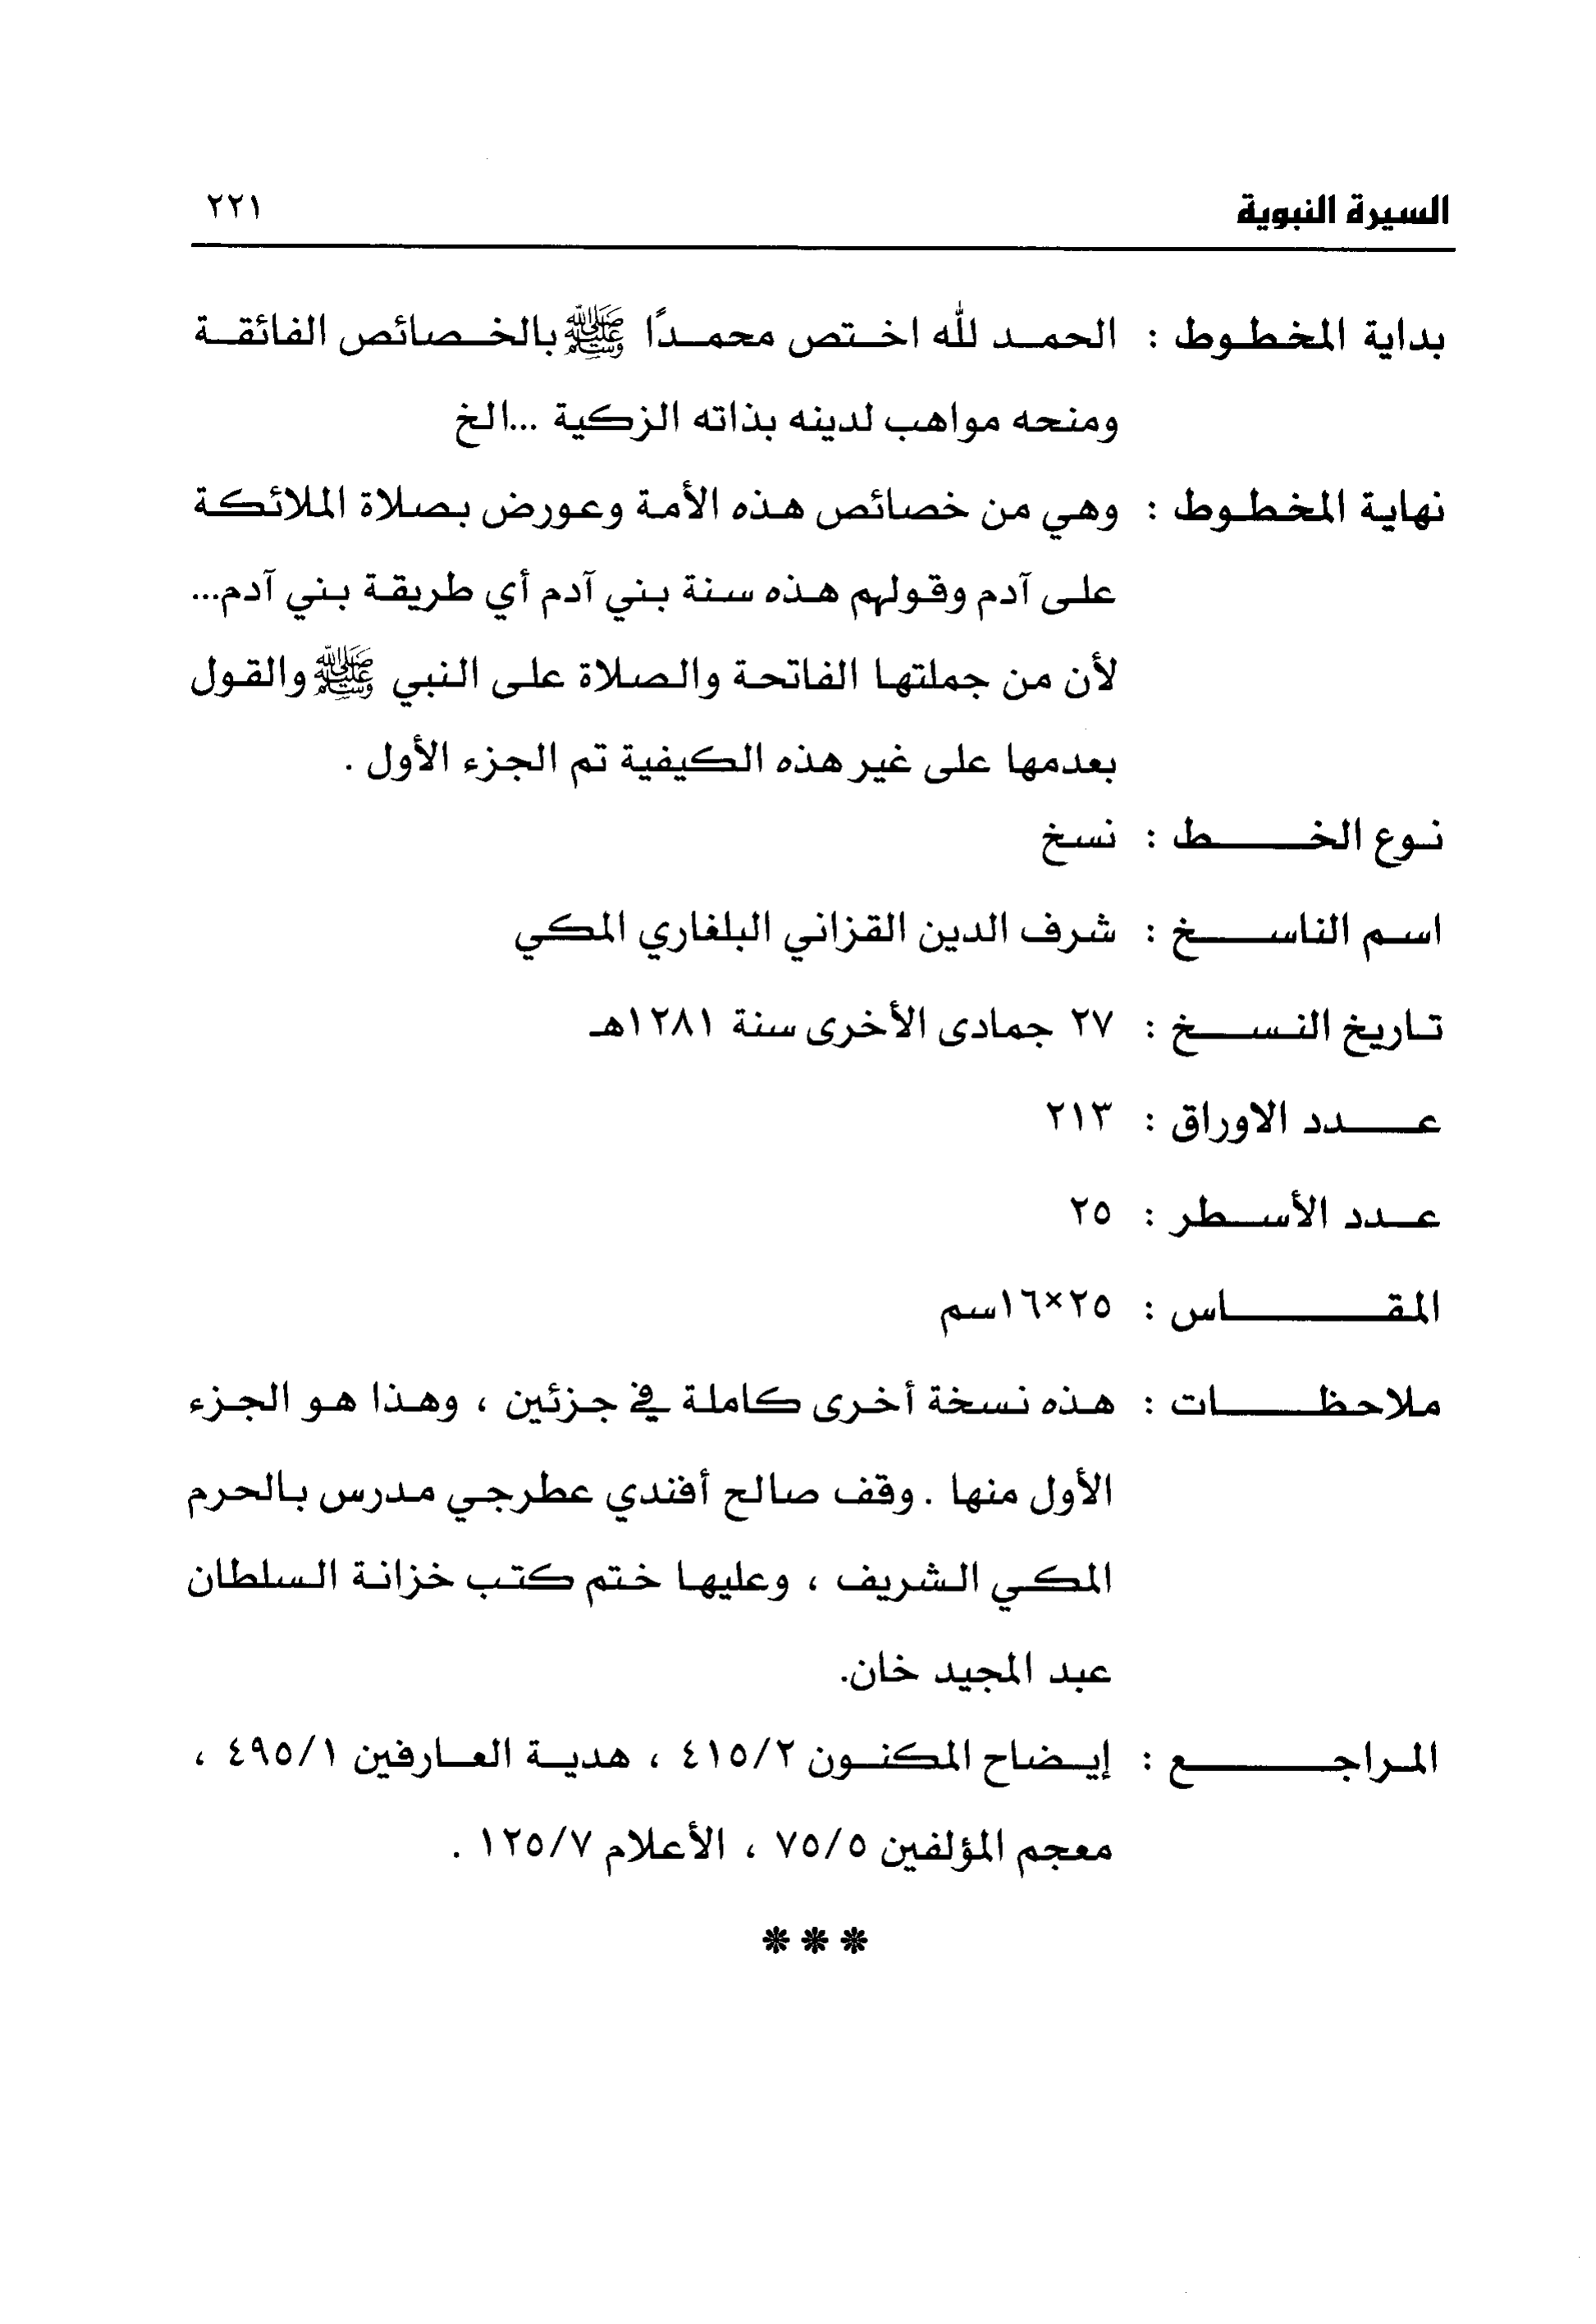 السيرة النبوية ٢٢١
بداية المخطوط : الحمد لله اختص محمدًا ﷺ بالخصائص الفائقة
ومنحه مواهب لدينه بذاته الزكية ...الخ
نهاية المخطوط : وهي من خصائص هذه الأمة وعورض بصلاة الملائكة
على آدم وقولهم هذه سنة بني آدم أي طريقة بني آدم...
لأن من جملتها الفاتحة والصلاة على النبي ﷺ والقول
بعدمها على غير هذه الكيفية تم الجزء الأول .
نوع الخط : نسخ
اسم الناسخ : شرف الدين القزاني البلغاري المكي
تاريخ النسخ : ٢٧ جمادى الأخرى سنة ١٢٨١هـ
عدد الاوراق : ٢١٣
عدد الأسطر : ٢٥
المقاس : ٢٥×١٦سم
ملاحظات : هذه نسخة أخرى كاملة في جزئين ، وهذا هو الجزء
الأول منها . وقف صالح أفندي عطرجي مدرس بالحرم
المكي الشريف ، وعليها ختم كتب خزانة السلطان
عبد المجيد خان.
المراجع : إيضاح المكنون ٤١٥/٢ ، هدية العارفين ٤٩٥/١ ،
معجم المؤلفين ٧٥/٥ ، الأعلام ١٢٥/٧ .
***